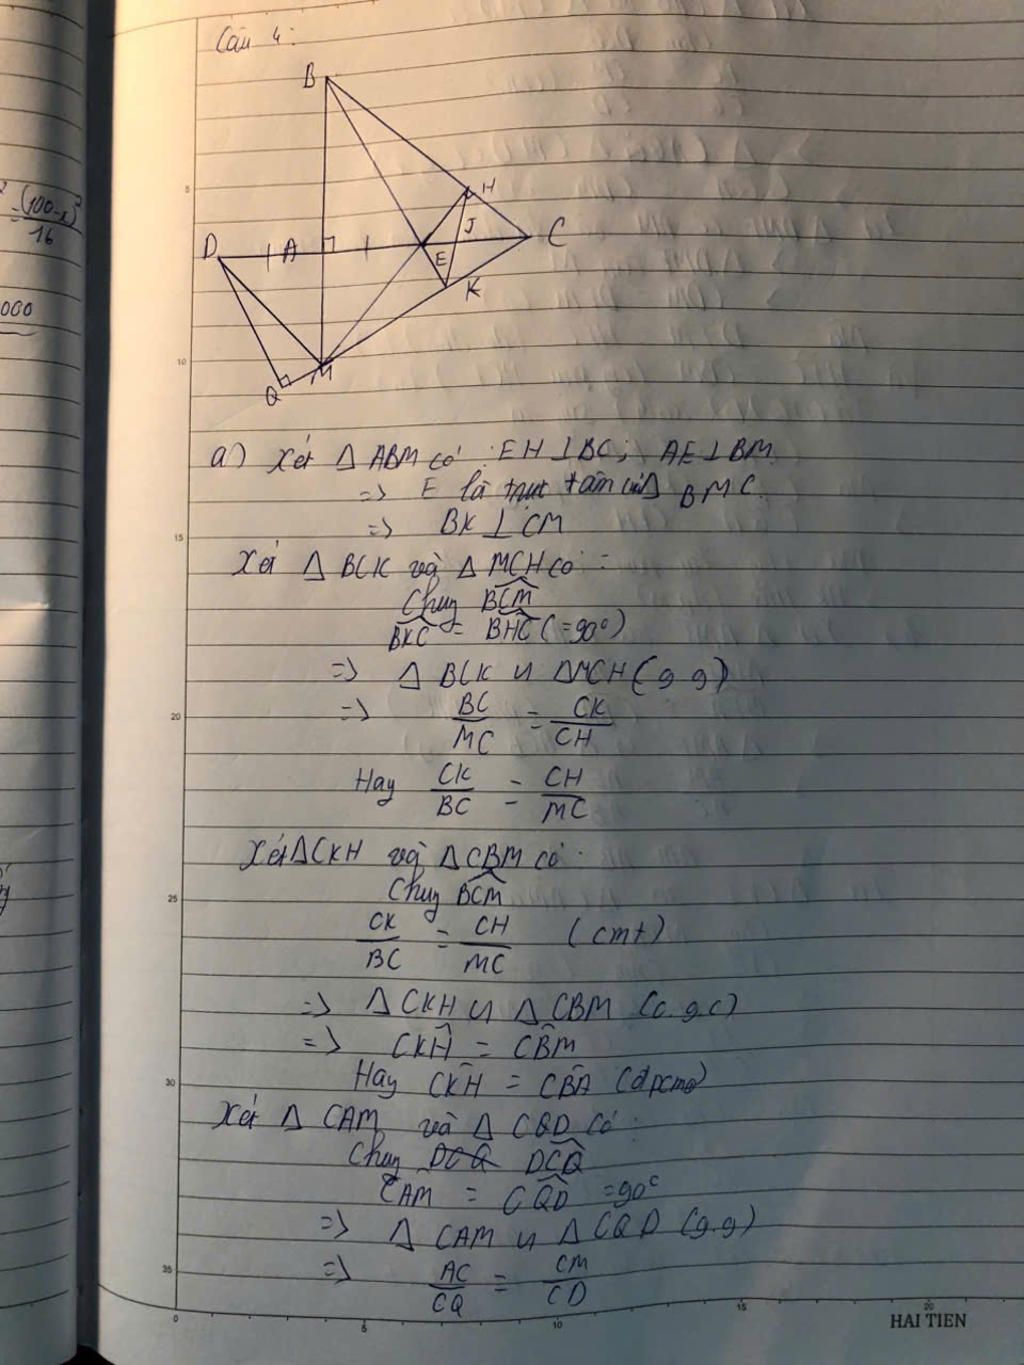 Câu 4:
B
H
J
C
D
A
E
K
M
Q
(100-x)²
16
000
5
10
15
20
25
30
35
a) Xét Δ ABM có : EH⊥BC; AE⊥BM
=> E là trực tâm của Δ BMC.
=> BK ⊥ CM
Xét Δ BCK và Δ MCH có :
Chung BCM
BKC = BHC (=90°)
=> Δ BCK ∽ ΔMCH (g g)
=> BC/MC = CK/CH
Hay CK/BC = CH/MC
Xét ΔCKH và ΔCBM có :
Chung BCM
CK/BC = CH/MC (cmt)
=> ΔCKH ∽ Δ CBM (c.g.c)
=> CKH = CBM
Hay CKH = CBA (đpcm)
Xét Δ CAM và Δ CQD có :
Chung DCQ DCQ
CAM = CQD =90°
=> Δ CAM ∽ Δ CQD (g.g)
=> AC/CQ = CM/CD
0 5 10 15 20
HAI TIEN